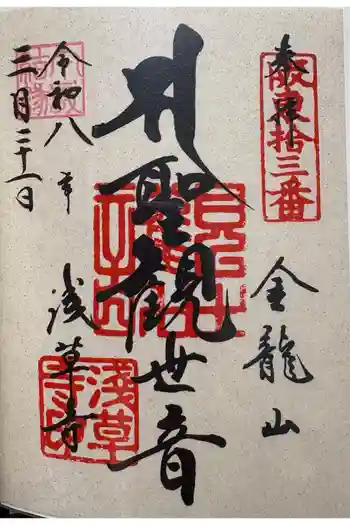 奉拝
坂東拾三番
金龍山
聖観世音
浅草寺
令和八年
三月二十一日
淺草寺印